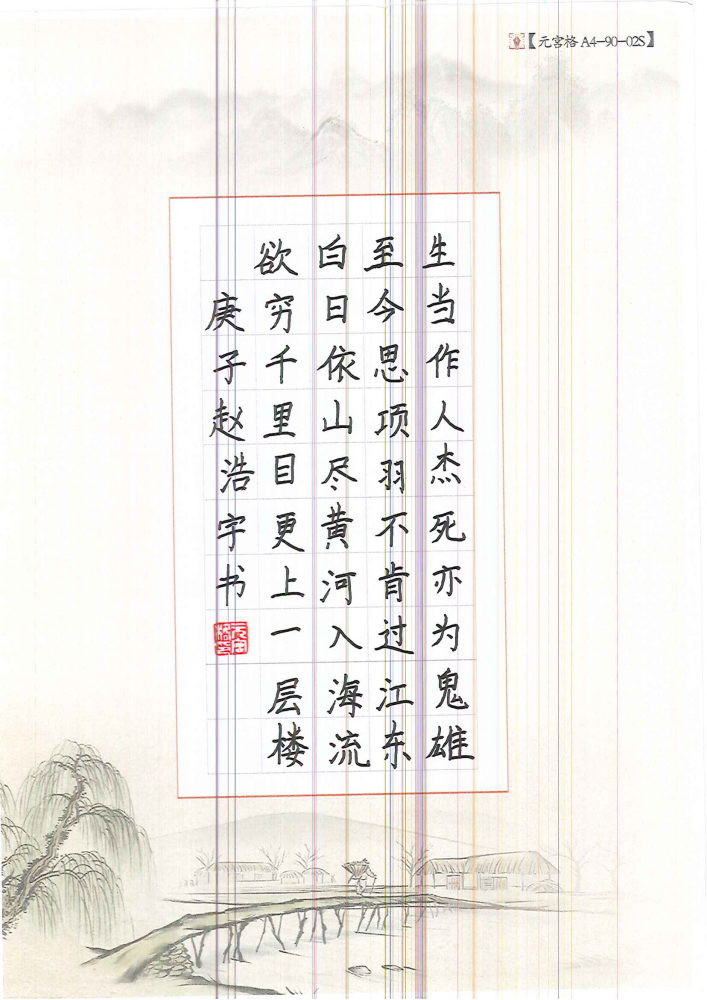 【元宫格 A4-90-02S】
生当作人杰死亦为鬼雄
至今思项羽不肯过江东
白日依山尽黄河入海流
欲穷千里目更上一层楼
庚子赵浩字书